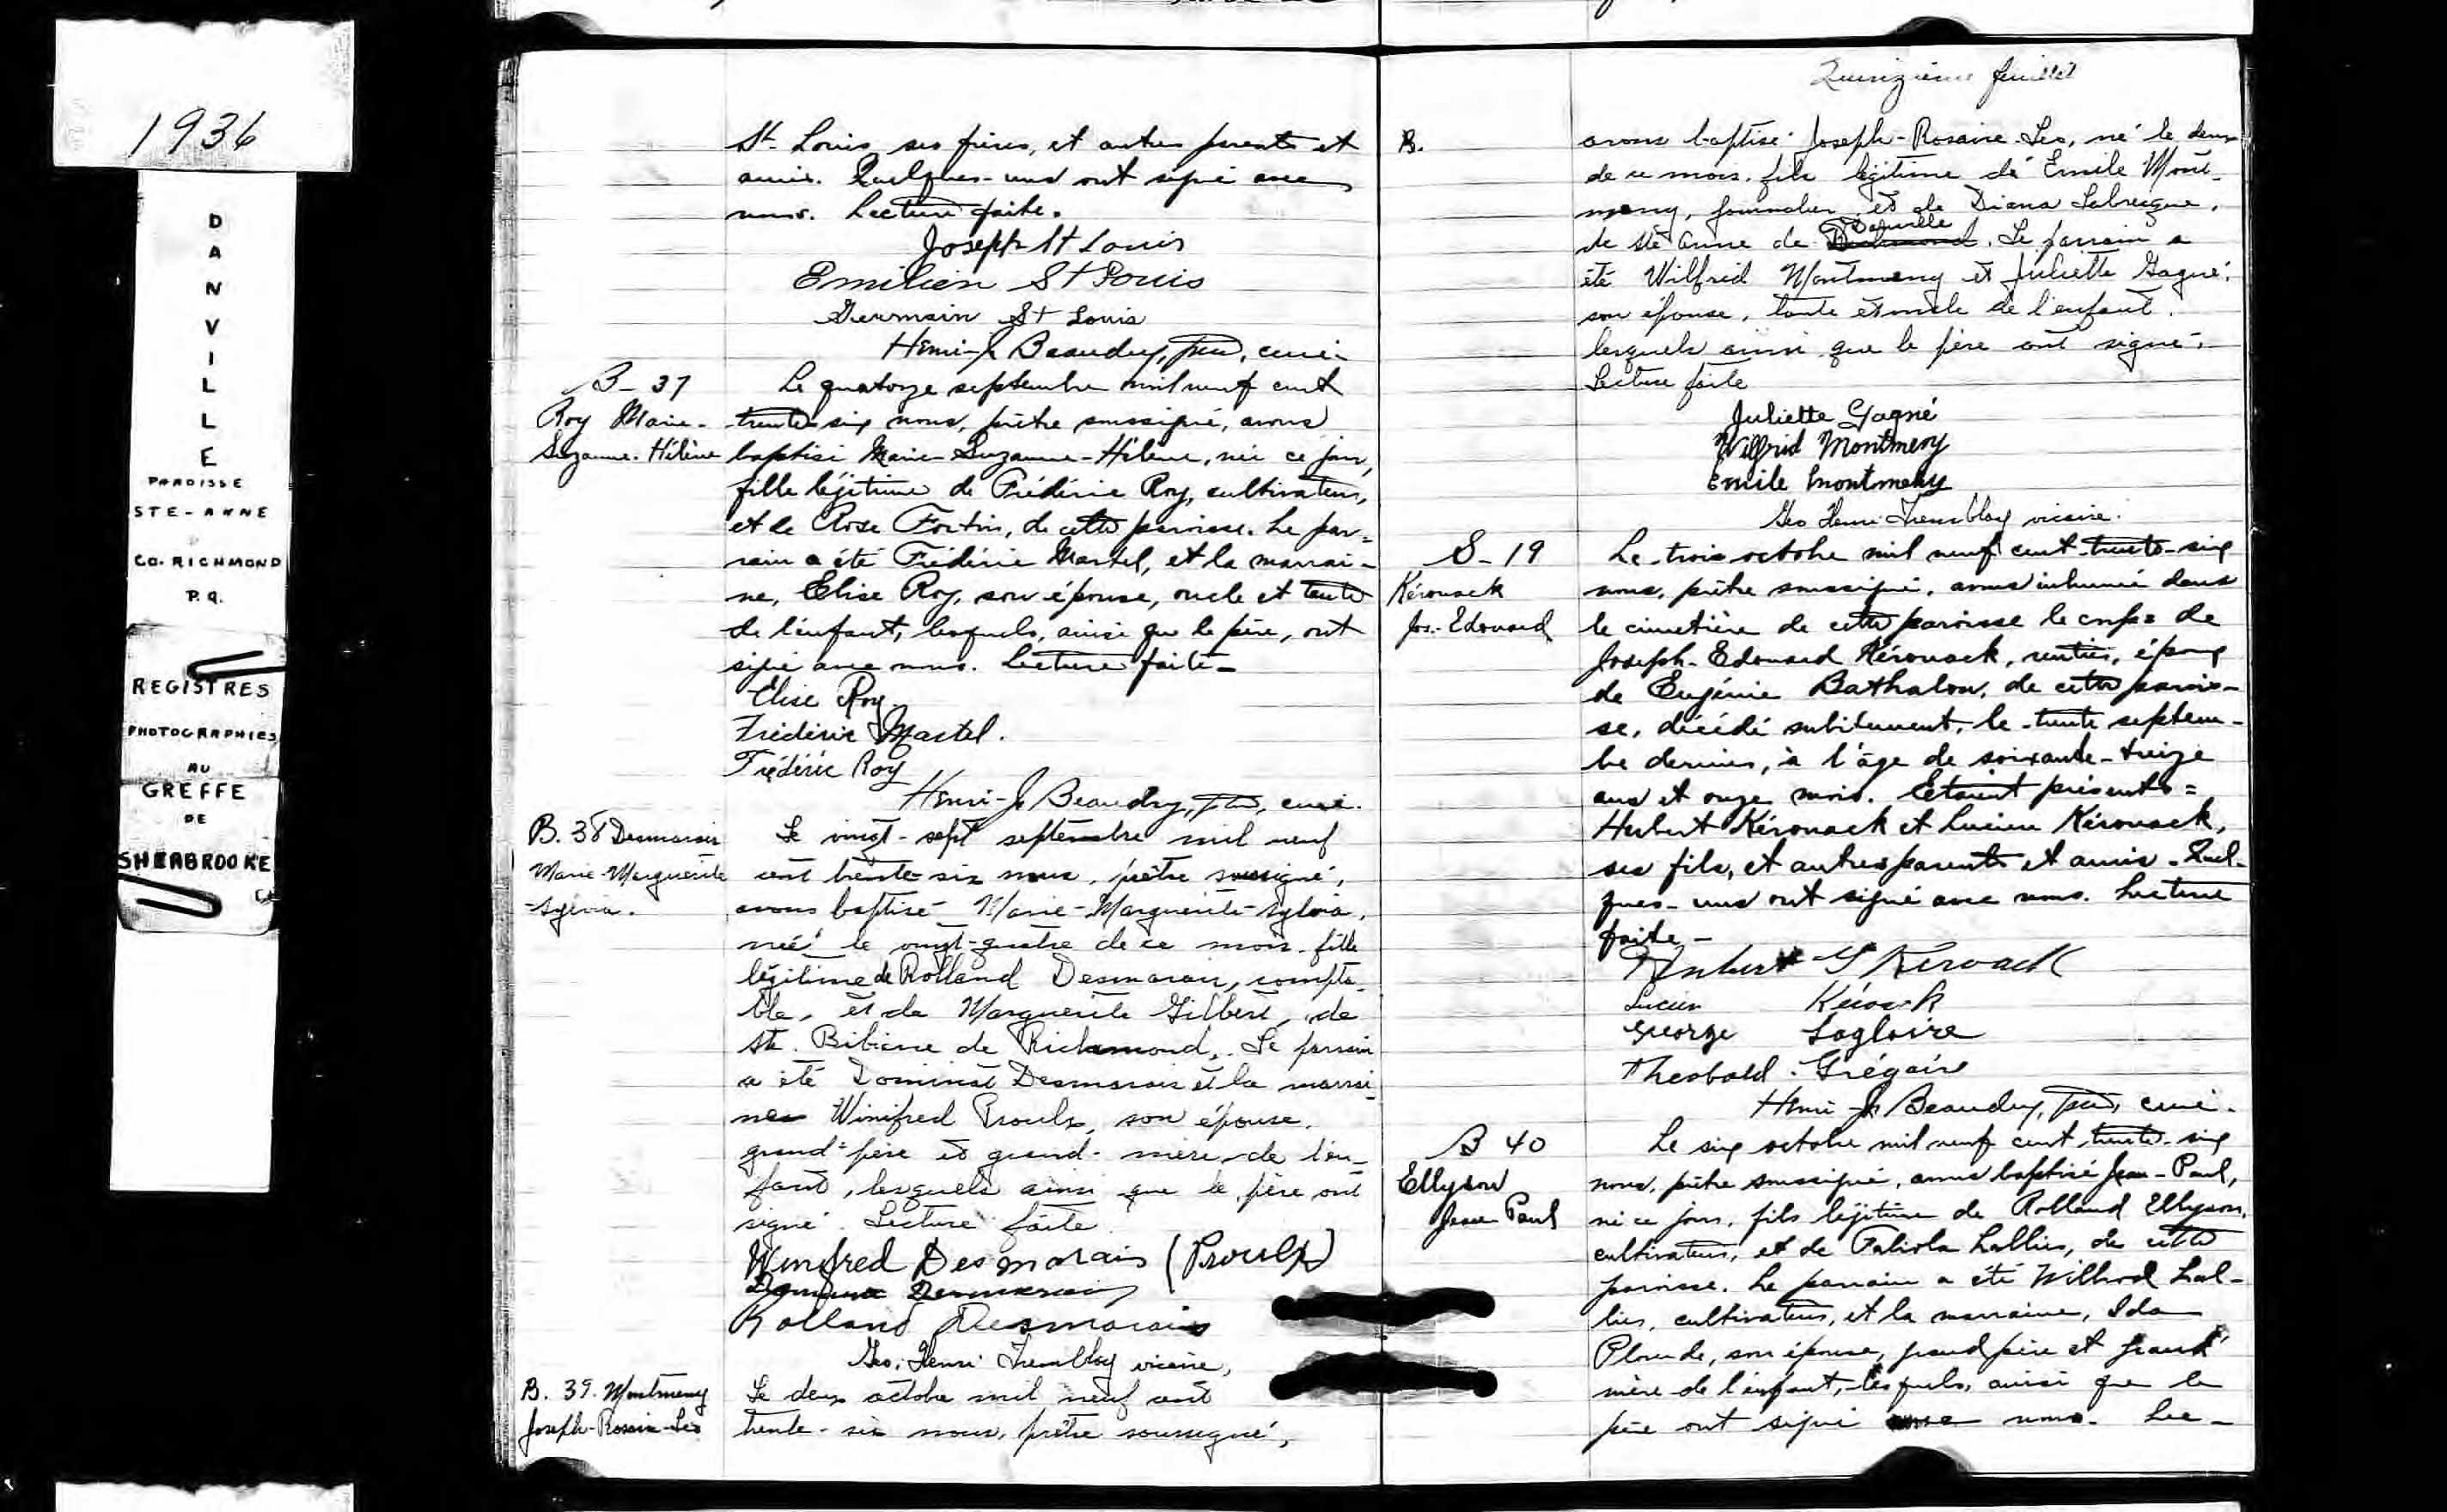 1936
D
A
N
V
I
L
L
E
PAROISSE
STE-ANNE
CO. RICHMOND
P.Q.
REGISTRES
PHOTOGRAPHIES
AU
GREFFE
DE
SHERBROOKE
St-Louis, ses frères, et autres parents et
amis. Quelques-uns ont signé avec
nous. Lecture faite.
Joseph St Louis
Emilien St Louis
Germain St Louis
Henri-J. Beaudry, ptre, curé.
B-37
Roy Marie-
Suzanne-Hélène
Le quatorze septembre mil neuf cent
trente-six nous, prêtre soussigné, avons
baptisé Marie-Suzanne-Hélène, née ce jour,
fille légitime de Frédéric Roy, cultivateur,
et de Rose Fortin, de cette paroisse. Le par-
rain a été Frédéric Martel, et la marrai-
ne, Elise Roy, son épouse, oncle et tante
de l'enfant, lesquels, ainsi que le père, ont
signé avec nous. Lecture faite-
Elise Roy.
Frédéric Martel.
Frédéric Roy
Henri-J. Beaudry, ptre, curé.
B. 38 Desmarais
Marie-Marguerite
-Sylvia.
Le vingt-sept septembre mil neuf
cent trente-six nous, prêtre soussigné,
avons baptisé Marie-Marguerite-Sylvia,
née le vingt-quatre de ce mois, fille
légitime de Rolland Desmarais, compta-
ble, et de Marguerite Gilbert, de
Ste. Bibiane de Richmond. Le parrain
a été Dominat Desmarais et la marrai-
ne Winifred Proulx, son épouse,
grand-père et grand-mère de l'en-
fant, lesquels ainsi que le père ont
signé. Lecture faite
Winifred Desmarais (Proulx)
Desmarais
Rolland Desmarais
Geo. Henri Tremblay vicaire,
B. 39. Montmeny
Joseph-Rosaire-Léo
Le deux octobre mil neuf cent
trente-six nous, prêtre soussigné,
Quinzième feuillet
B.
avons baptisé Joseph-Rosaire-Léo, né le deux
de ce mois, fils légitime de Emile Mont-
meny, journalier et de Diana Labrecque,
Danville
de Ste Anne de Richmond. Le parrain a
été Wilfrid Montmeny et Juliette Gagné,
son épouse, tante et oncle de l'enfant,
lesquels ainsi que le père ont signé.
Lecture faite
Juliette Gagné
Wilfrid Montmeny
Emile Montmeny
Geo Henri Tremblay vicaire.
S-19
Kérouack
Jos.-Edouard
Le trois octobre mil neuf cent trente-six
nous, prêtre soussigné, avons inhumé dans
le cimetière de cette paroisse le corps de
Joseph-Edouard Kérouack, rentier, époux
de Eugénie Bathalon, de cette parois-
se, décédé subitement, le trente septem-
bre dernier, à l'âge de soixante-treize
ans et onze mois. Etaient présents=
Hubert Kérouack et Lucien Kérouack,
ses fils, et autres parents et amis. Quel-
ques-uns ont signé avec nous. Lecture
faite-
Hubert Kérouack
Lucien Kérouack
George Lagloire
Theobald Grégoire
Henri-J. Beaudry, ptre, curé.
B 40
Ellyson
Jean-Paul
Le six octobre mil neuf cent trente-six
nous, prêtre soussigné, avons baptisé Jean-Paul,
né ce jour, fils légitime de Rolland Ellyson,
cultivateur, et de Fabiola Lallier, de cette
paroisse. Le parrain a été Willrod Lal-
lier, cultivateur, et la marraine, Ida
Plourde, son épouse, grand père et grand'
mère de l'enfant, lesquels, ainsi que le
père ont signé avec nous. Lec-